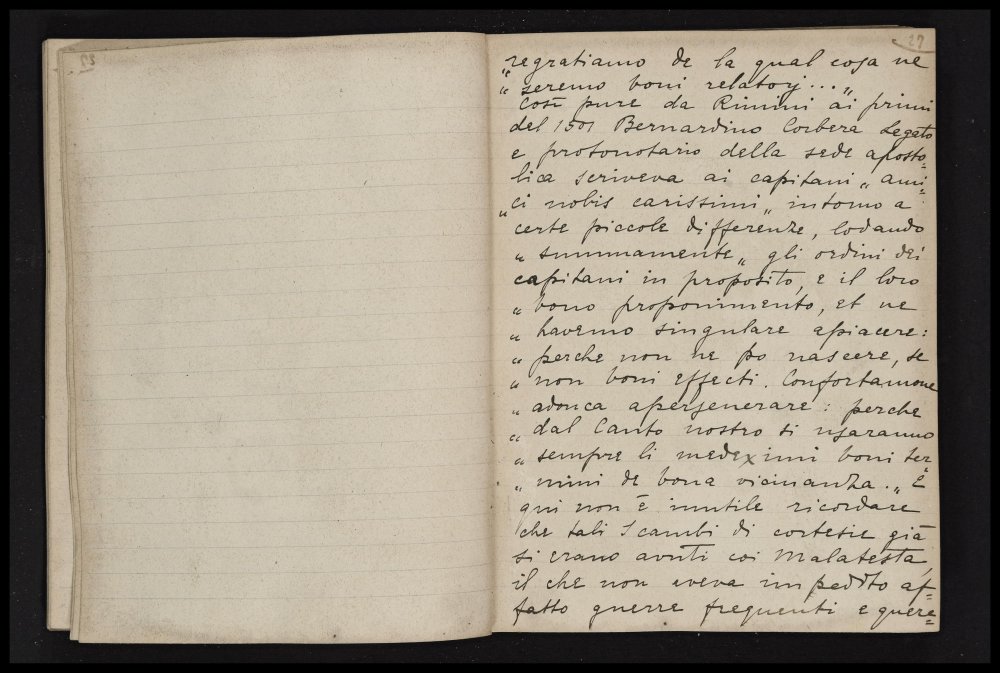 27
„regratiamo de la qual cosa ne
„seremo boni relatorj..."„
Così pure da Rimini ai primi
del 1501 Bernardino Corbera Legato
e protonotario della sede aposto=
lica scriveva ai capitani „ami=
„ci nobis carissimi„ intorno a
certe piccole differenze, lodando
„summamente„ gli ordini dei
capitani in proposito, e il loro
„bono proponimento, et ne
„havemo singulare apiacere:
„perche non ne po nascere, se
„non boni effecti. Confortamone
„adonca aperseverare: perche
„dal Canto nostro si usaranno
„sempre li medeximi boni ter=
„mini de bona vicinanza.„ E
qui non è inutile ricordare
che tali scambi di cortesie già
si erano avuti coi Malatesta,
il che non aveva impedito af=
fatto guerre frequenti e quere=